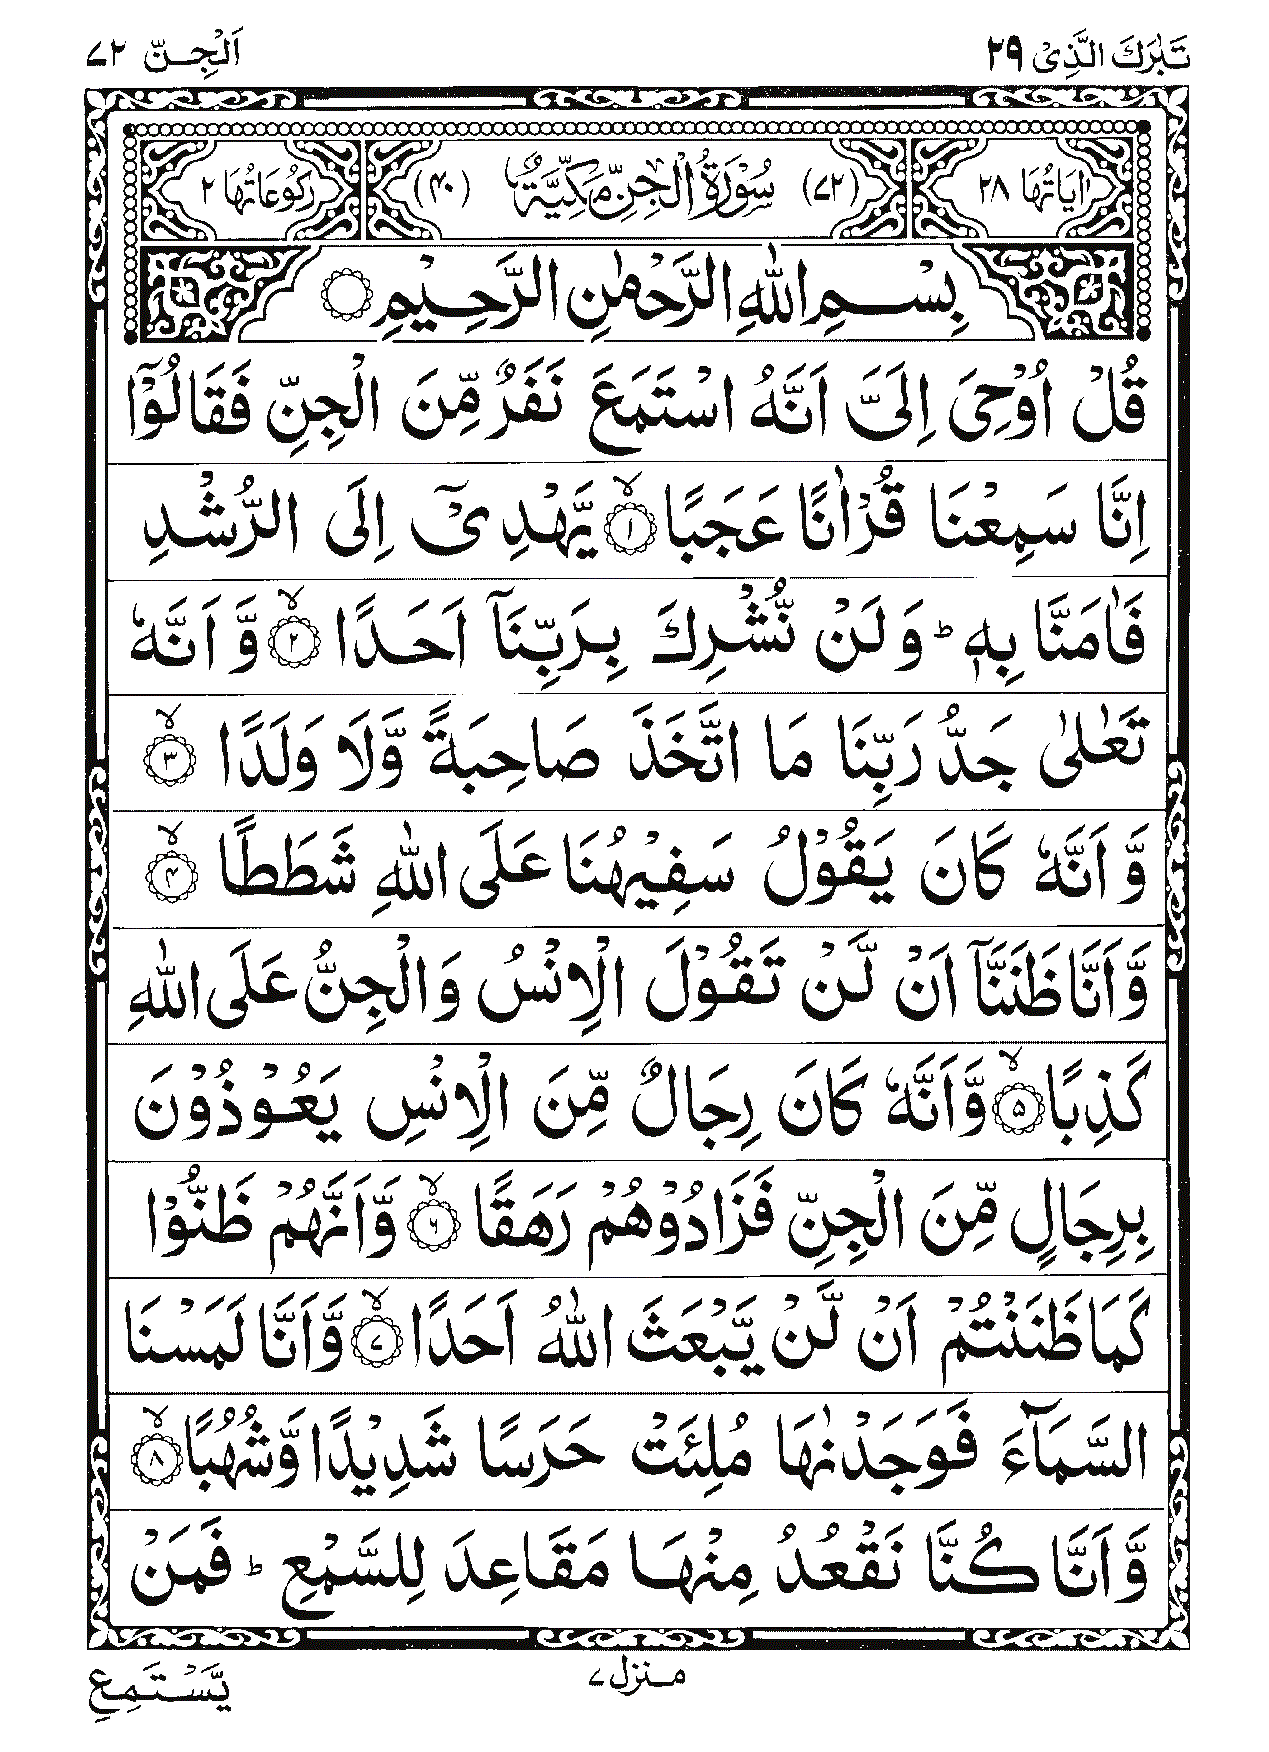 تَبٰرَكَ الَّذِیْ ٢٩
اَلْجِـنّ ٧٢
اٰیَاتُهَا ٢٨
(٧٢) سُوْرَةُ الْجِنِّ مَكِّیَّةٌ (۴۰)
رُكُوْعَاتُهَا ٢
بِسْمِ اللّٰهِ الرَّحْمٰنِ الرَّحِیْمِ
قُلْ اُوْحِیَ اِلَیَّ اَنَّهُ اسْتَمَعَ نَفَرٌ مِّنَ الْجِنِّ فَقَالُوْۤا
اِنَّا سَمِعْنَا قُرْاٰنًا عَجَبًا ۙ﴿۱﴾ یَّهْدِیْۤ اِلَی الرُّشْدِ
فَاٰمَنَّا بِهٖ ؕ وَ لَنْ نُّشْرِكَ بِرَبِّنَاۤ اَحَدًا ۙ﴿۲﴾ وَّ اَنَّهٗ
تَعٰلٰی جَدُّ رَبِّنَا مَا اتَّخَذَ صَاحِبَةً وَّلَا وَلَدًا ۙ﴿۳﴾
وَّ اَنَّهٗ كَانَ یَقُوْلُ سَفِیْهُنَا عَلَی اللّٰهِ شَطَطًا ۙ﴿۴﴾
وَّاَنَّا ظَنَنَّاۤ اَنْ لَّنْ تَقُوْلَ الْاِنْسُ وَالْجِنُّ عَلَی اللّٰهِ
كَذِبًا ۙ﴿۵﴾ وَّاَنَّهٗ كَانَ رِجَالٌ مِّنَ الْاِنْسِ یَعُوْذُوْنَ
بِرِجَالٍ مِّنَ الْجِنِّ فَزَادُوْهُمْ رَهَقًا ۙ﴿۶﴾ وَّاَنَّهُمْ ظَنُّوْا
كَمَا ظَنَنْتُمْ اَنْ لَّنْ یَّبْعَثَ اللّٰهُ اَحَدًا ۙ﴿۷﴾ وَّاَنَّا لَمَسْنَا
السَّمَآءَ فَوَجَدْنٰهَا مُلِئَتْ حَرَسًا شَدِیْدًا وَّشُهُبًا ۙ﴿۸﴾
وَّاَنَّا كُنَّا نَقْعُدُ مِنْهَا مَقَاعِدَ لِلسَّمْعِ ؕ فَمَنْ
منزل ٧
یَّسْتَمِعِ